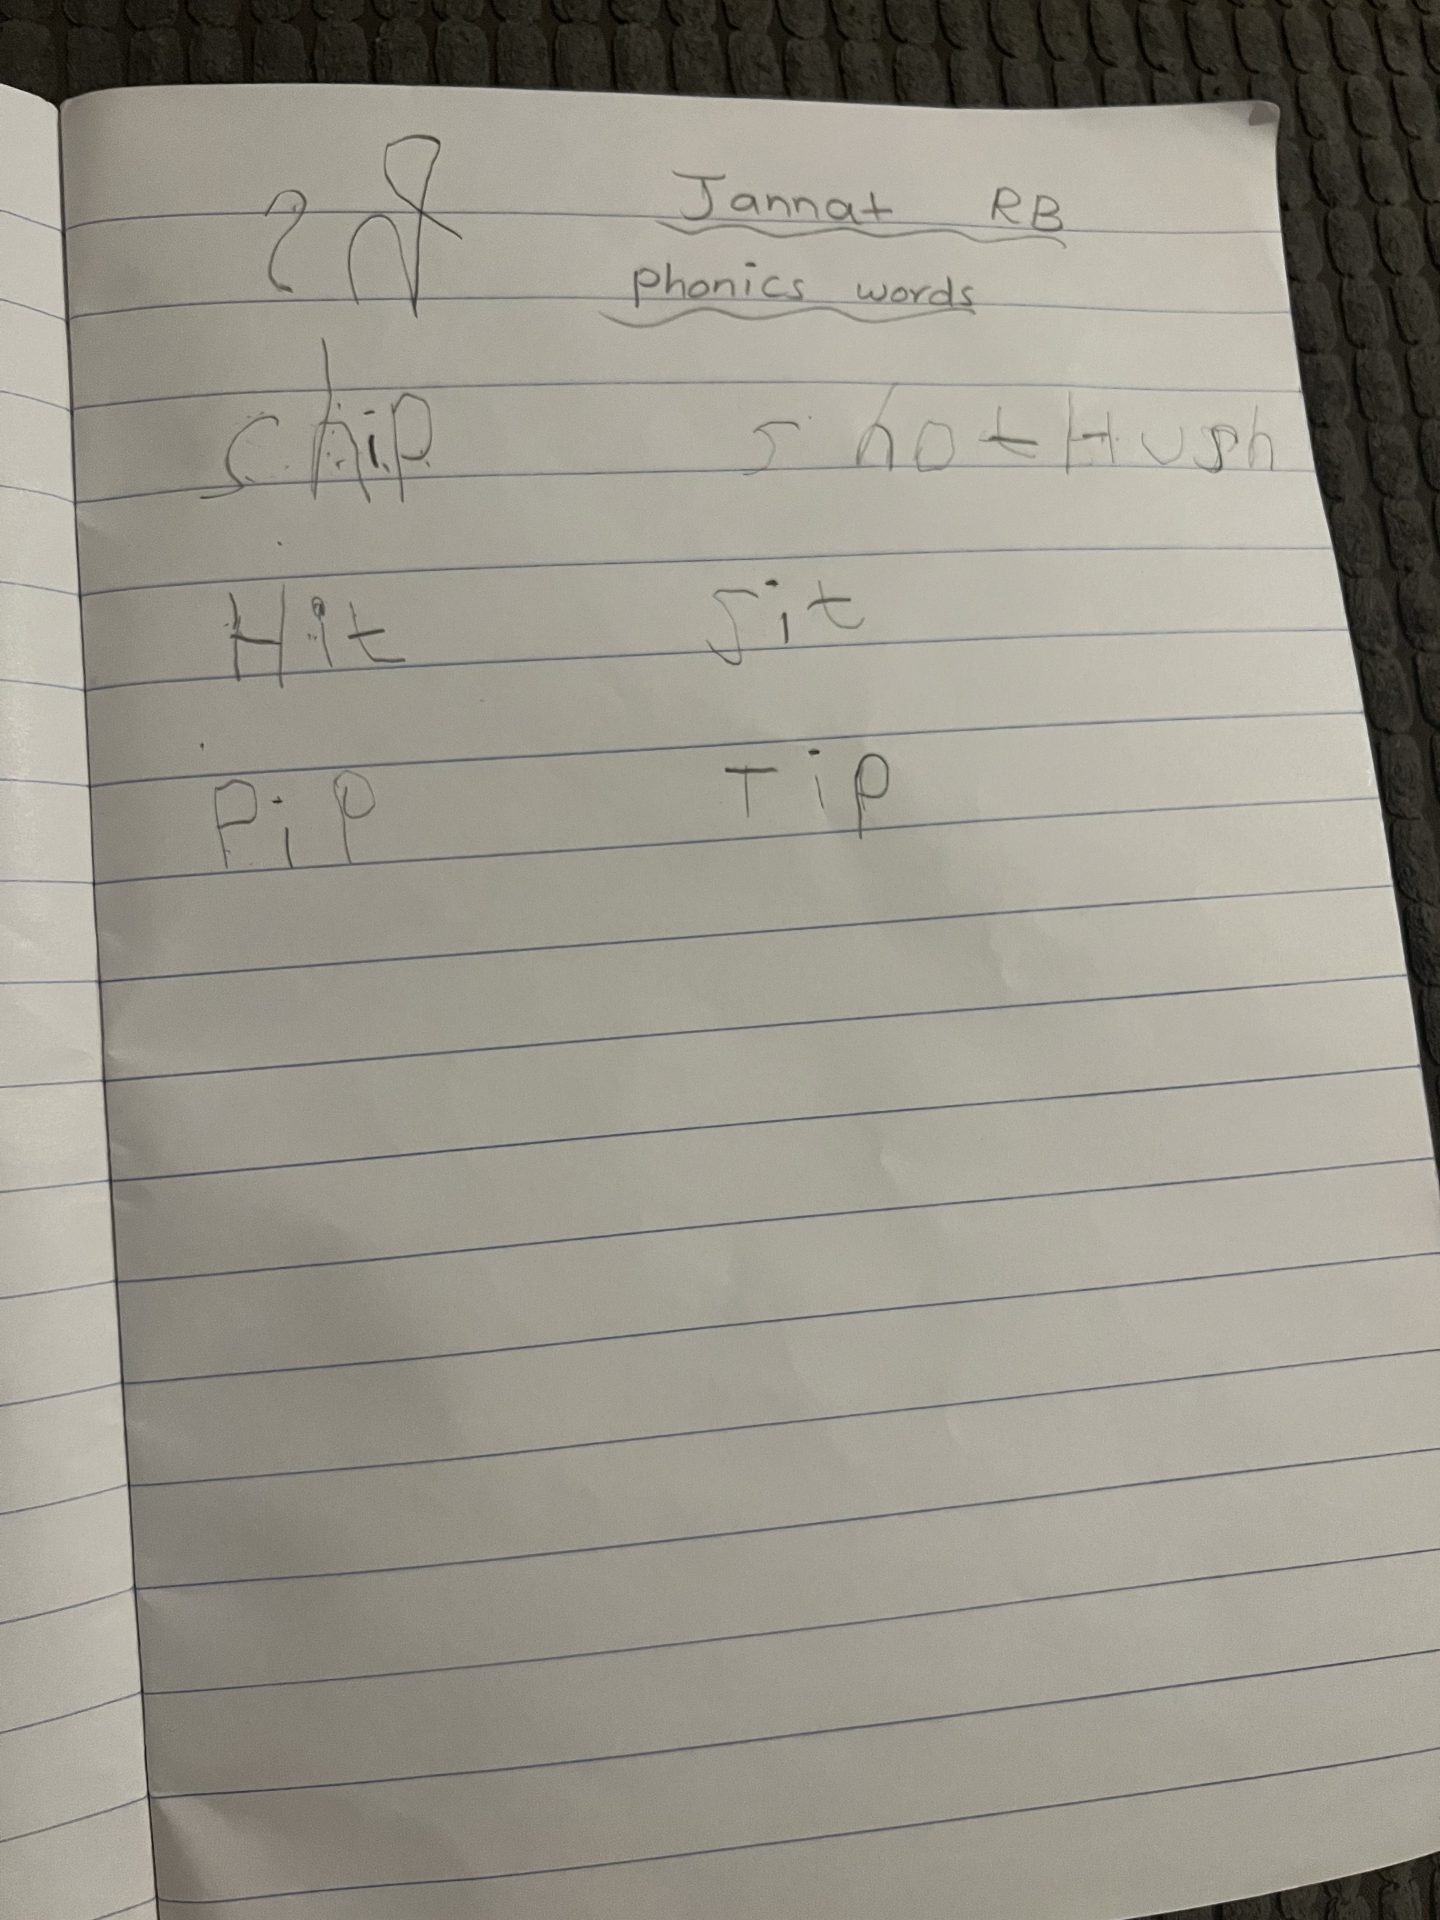 Jannat RB
phonics words
ship shot Hush
Hit sit
Pip Tip